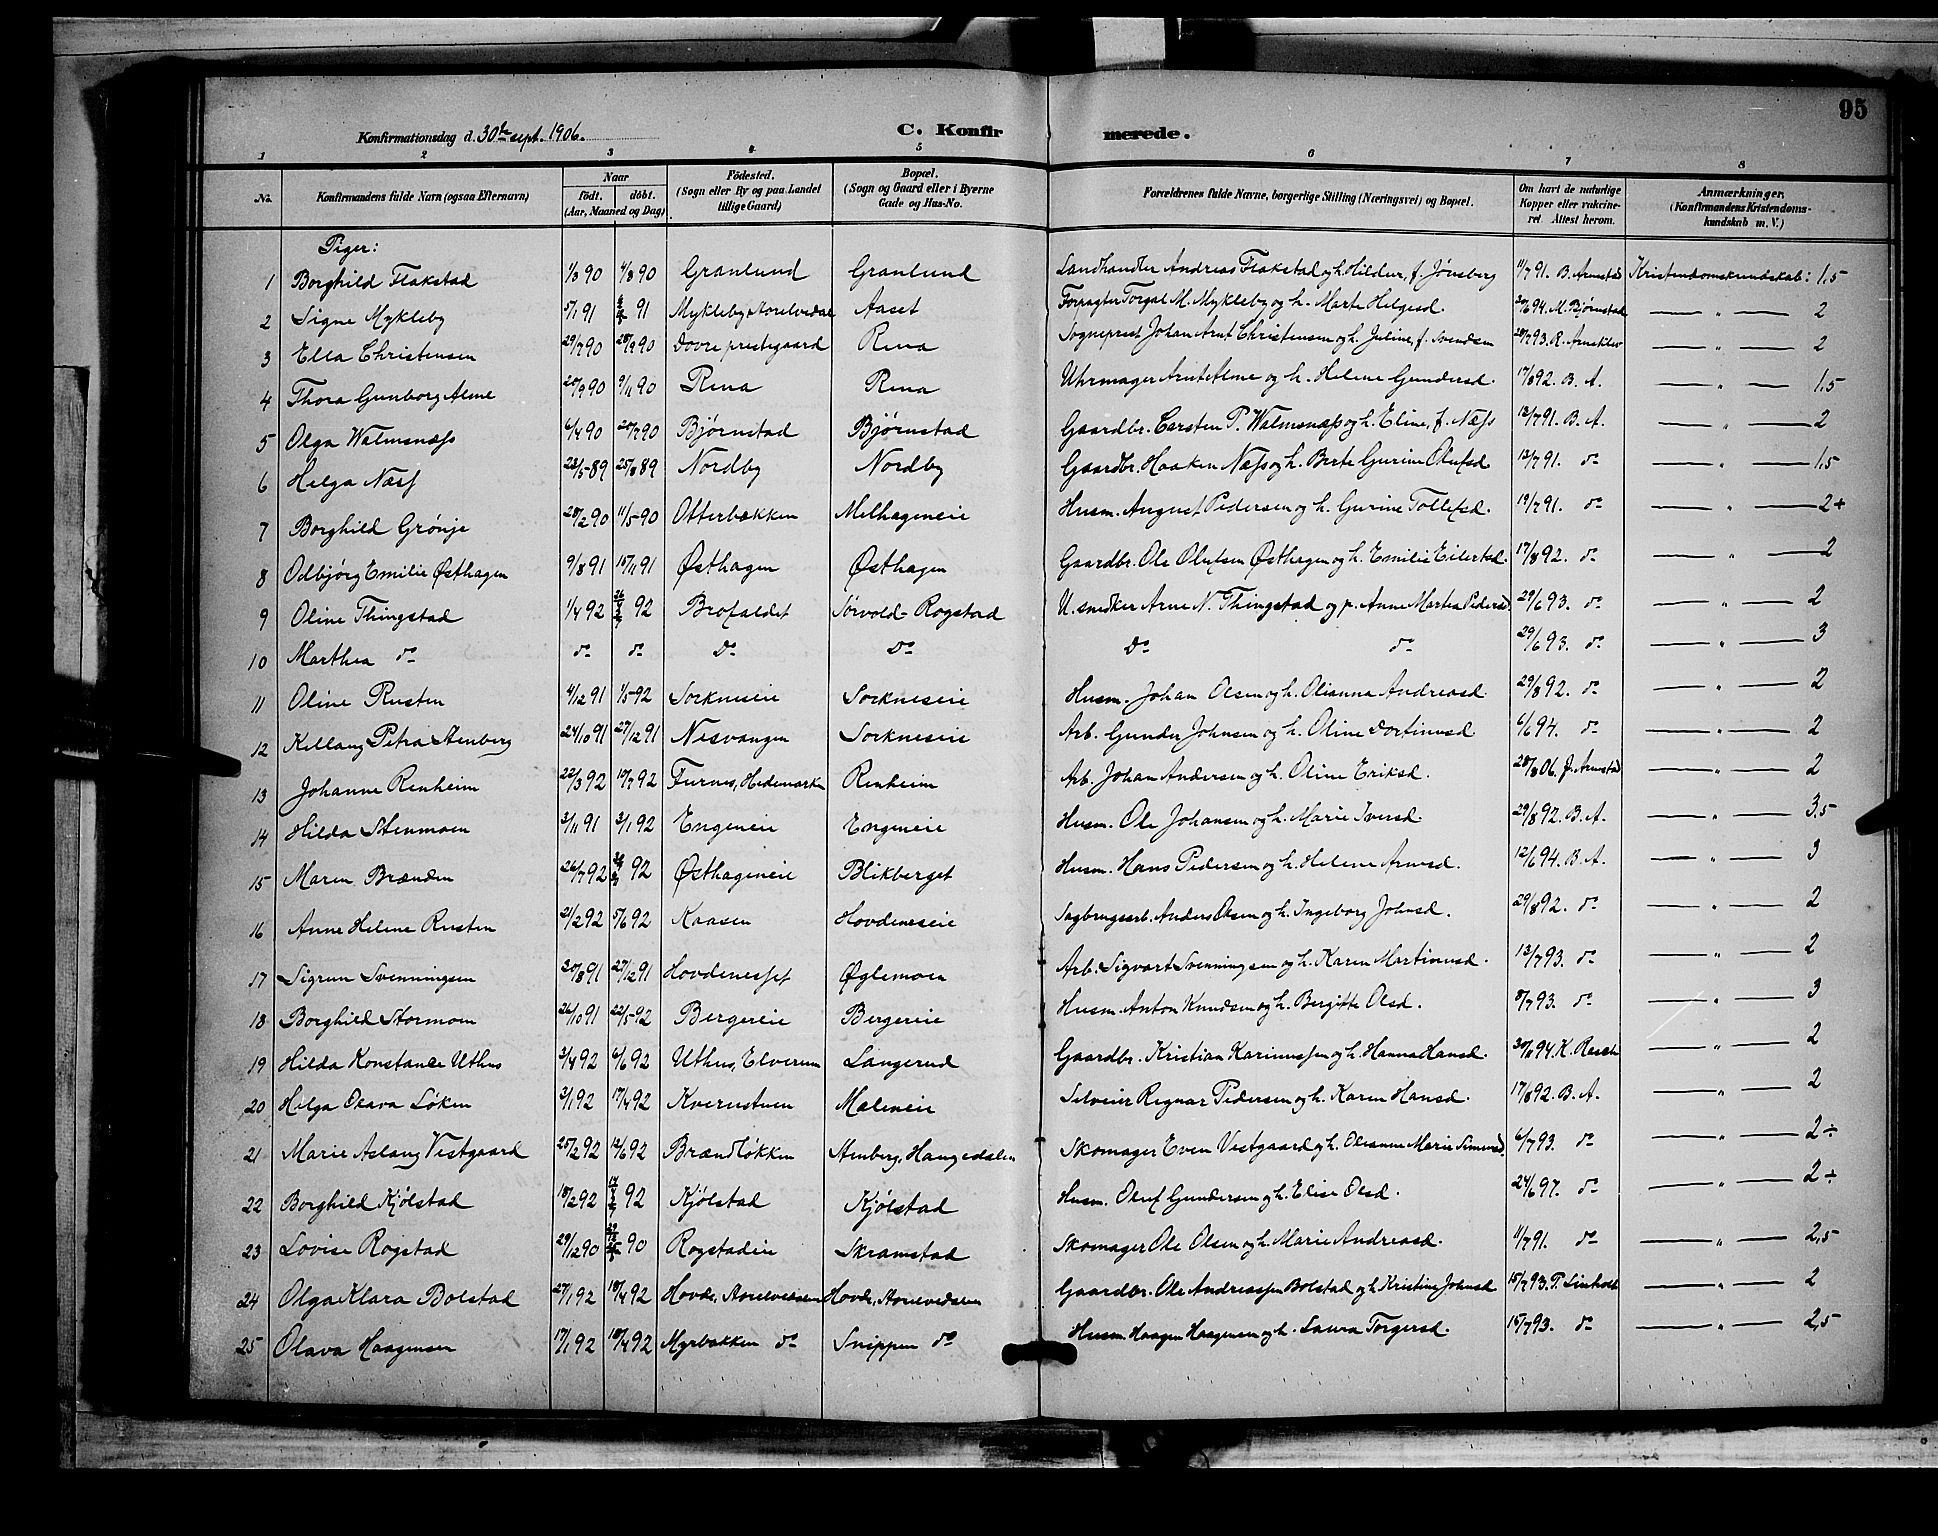 95
Konfirmationsdag d. 30te sept. 1906.
C. Konfirmerede.
1 2 3 4 5 6 7 8
No. Konfirmandens fulde Navn (ogsaa Efternavn) Naar født. døbt. (Aar, Maaned og Dag) Fødested. (Sogn eller By og paa Landet tillige Gaard) Bopæl. (Sogn og Gaard eller i Byerne Gade og Hus-No. Forældrenes fulde Navne, borgerlige Stilling (Næringsvei) og Bopæl. Om havt de naturlige Kopper eller vakcineret Attest herom. Anmærkninger, (Konfirmandens Kristendomskundskab m. V.)
Piger:
1 Borghild Flakstad 1/3 90 4/8 90 Granlund Granlund Landhandler Andreas Flakstad og h. Hildur, f. Jønsberg 11/7 91. B. Arnstad Kristendomskundskab: 1,5
2 Signe Mykleby 5/1 91 91 Mykleby, Storelvedal Aaset Forpagter Torgal M. Mykleby og h. Marte Helgesd. 30/6 94. M. Bjørnstad — " — 2
3 Ella Christensen 29/7 90 28/9 90 Dovre prestegaard Rena Sogneprest Johan Arnt Christensen og h. Juline, f. Svendsen 28/7 93. R. — " — 2
4 Thora Gunborg Alme 20/9 90 9/11 90 Rena Rena Uhrmager Arnt Alme og h. Helene Gundersd. 17/8 92. B. A. — " — 1,5
5 Olga Walmsnæss 6/4 90 20/7 90 Bjørnstad Bjørnstad Gaardbr. Carsten P. Walmsnæss og h. Eline, f. Næss 12/7 91. B. A. — " — 2
6 Helga Næss 23/5 89 25/8 89 Nordby Nordby Gaardbr. Haaken Næss og h. Berte Gurine Olufsd. 12/7 91. do — " — 1,5
7 Borghild Grønje 28/2 90 11/5 90 Otterbækken Melhageneie Husm. August Pedersen og h. Gurine Tollefsd. 19/7 91. do — " — 2+
8 Odbjørg Emilie Østhagen 9/8 91 15/11 91 Østhagen Østhagen Gaardbr. Ole Olufsen Østhagen og h. Emilie Eilertsd. 17/8 92. do — " — 2
9 Oline Thingstad 1/4 92 92 Brofaldet Sørvold-Rogstad U. snedker Arne N. Thingstad og p. Anne Marthea Pedersd. 29/6 93. do — " — 2
10 Marthea do do do Do Do Do do 29/6 93. do — " — 3
11 Oline Rusten 4/12 91 1/5 92 Sorkneseie Sorkneseie Husm. Johan Olsen og h. Olianna Andreasd. 29/8 92. do — " — 2
12 Kellaug Petra Stenberg 24/10 91 27/12 91 Nesvangen Sorkneseie Arb. Gunder Johnsen og h. Oline Dortinusd 6/6 94. do — " — 2
13 Johanne Renheim 22/3 92 10/7 92 Furnes, Hedemarken Renheim Arb. Johan Andersen og h. Oline Eriksd. 28/8 06. J. Arnstad — " — 2
14 Hilda Stenmoen 3/11 91 3/1 92 Engeneie Engeneie Husm. Ole Johansen og h. Marie Iversd. 29/8 92. B. A. — " — 3,5
15 Maren Brænden 26/7 92 92 Østhageneie Blikberget Husm. Hans Pedersen og h. Helene Arnesd. 12/6 94. B. A. — " — 3
16 Anne Helene Rusten 21/2 92 5/6 92 Kaasen Hovdeneseie Sagbrugsarb. Anders Olsen og h. Ingeborg Johnsd. 29/8 92. do — " — 2
17 Sigrun Svenningsen 20/8 91 27/12 91 Hovdenesset Øglemoen Arb. Sigvart Svenningsen og h. Karen Martinusd. 13/7 93. do — " — 2
18 Borghild Stormoen 26/10 91 22/5 92 Bergereie Bergereie Husm. Anton Knudsen og h. Bergitte Olsd. 8/7 93. do — " — 3
19 Hilda Konstanse Uthus 3/4 92 6/6 92 Uthus, Elverum Langerud Gaardbr. Kristian Karinussen og h. Hanna Hansd. 94. K. — " — 2
20 Helga Olava Løken 3/1 92 17/4 92 Kvernstuen Meleneie Selveier Regnar Pedersen og h. Karen Hansd. 17/8 92. B. A. — " — 2
21 Marie Aslaug Vestgaard 25/2 92 12/6 92 Brændløkken Stenberg, Haugedalen Skomager Even Vestgaard og h. Oleanne Marie Simensd. 6/7 93. do — " — 2÷
22 Borghild Kjølstad 18/2 92 92 Kjølstad Kjølstad Husm. Oluf Gundersen og h. Elise Olsd. 24/6 97. do — " — 2÷
23 Lovise Rogstad 29/12 90 90 Rogstadeie Skramstad Skomager Ole Olsen og h. Marie Andreasd. 11/7 91. do — " — 2,5
24 Olga Klara Bolstad 27/1 92 18/4 92 Hovde, Storelvedalen Hovde, Storelvedalen Gaardbr. Ole Andreassen Bolstad og h. Kristine Johnsd 15/7 93. P. — " — 2
25 Olava Haagensen 17/1 92 18/4 92 Myrbakken do Snippen do Husm. Haagen Haagensen og h. Laura Torgersd. 15/7 93. do — " — 2,5